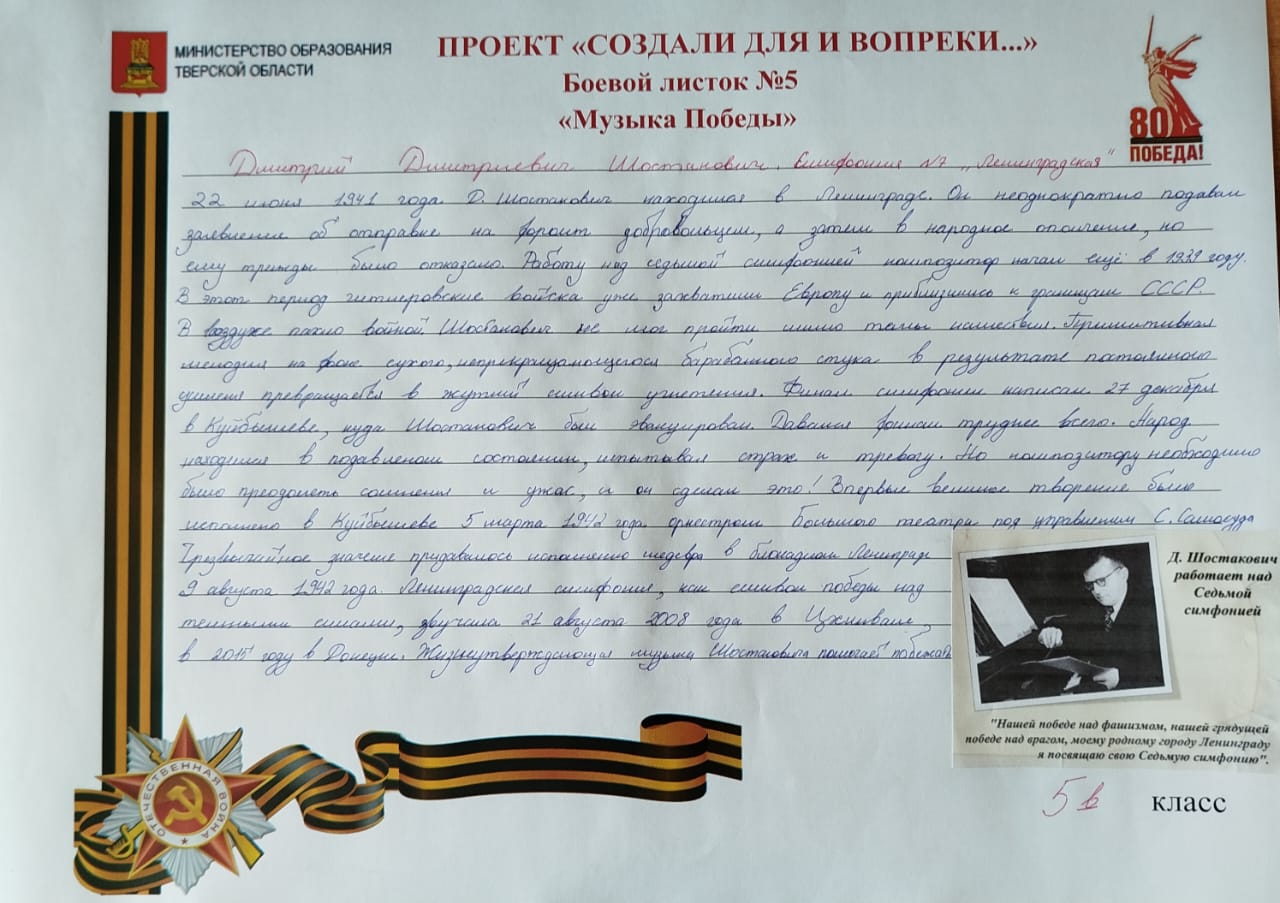 МИНИСТЕРСТВО ОБРАЗОВАНИЯ
ТВЕРСКОЙ ОБЛАСТИ
ПРОЕКТ «СОЗДАЛИ ДЛЯ И ВОПРЕКИ...»
Боевой листок №5
«Музыка Победы»
80
ПОБЕДА!
Дмитрий Дмитриевич Шостакович. Симфония №7 „Ленинградская"
22 июня 1941 года Д. Шостакович находился в Ленинграде. Он неоднократно подавал
заявление об отправке на фронт добровольцем, а затем в народное ополчение, но
ему трижды было отказано. Работу над седьмой симфонией композитор начал ещё в 1939 году.
В этот период гитлеровские войска уже захватили Европу и приблизились к границам СССР.
В воздухе пахло войной. Шостакович не мог пройти мимо темы нашествия. Примитивная
мелодия на фоне сухого, непрекращающегося барабанного стука в результате постоянного
усиления превращается в жуткий символ угнетения. Финал симфонии написал 27 декабря
в Куйбышеве, куда Шостакович был эвакуирован. Давался финал труднее всего. Народ
находился в подавленом состоянии, испытывал страх и тревогу. Но композитору необходимо
было преодолеть сомнения и ужас, и он сделал это! Впервые великое творение было
исполнено в Куйбышеве 5 марта 1942 года оркестром Большого театра под управлением С. Самосуда
Чрезвычайное значение придавалось исполнению шедевра в блокадном Ленинграде
9 августа 1942 года. Ленинградская симфония, как символ победы над
темными силами, звучала 21 августа 2008 года в Цхинвале,
в 2015 году в Донецке. Жизнеутверждающая музыка Шостаковича помогает
Д. Шостакович
работает над
Седьмой
симфонией
"Нашей победе над фашизмом, нашей грядущей
победе над врагом, моему родному городу Ленинграду
я посвящаю свою Седьмую симфонию".
ОТЕЧЕСТВЕННАЯ ВОЙНА
5 в класс